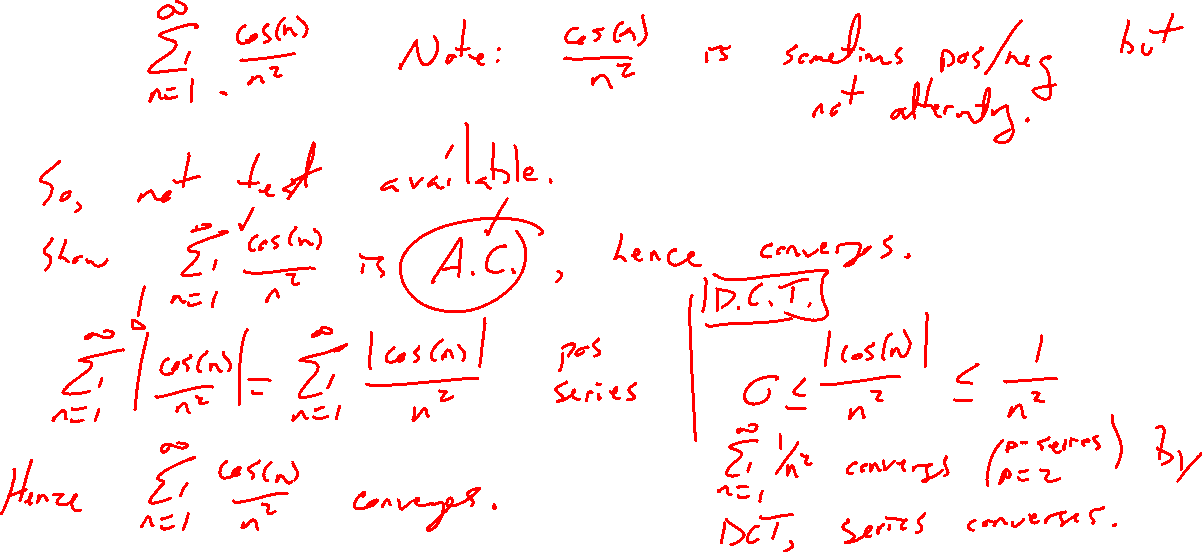 ∑_{n=1}^{∞} cos(n)/n² Note: cos(n)/n² is sometims pos/neg but
not alternatng.
So, not test available.
Show ∑_{n=1}^{∞} cos(n)/n² is A.C., hence convergs.
D.C.T.
∑_{n=1}^{∞} |cos(n)/n²| = ∑_{n=1}^{∞} |cos(n)|/n² pos series
0 ≤ |cos(n)|/n² ≤ 1/n²
∑_{n=1}^{∞} 1/n² convergs (p-series p=2) By
DCT, series converges.
Hence ∑_{n=1}^{∞} cos(n)/n² converges.